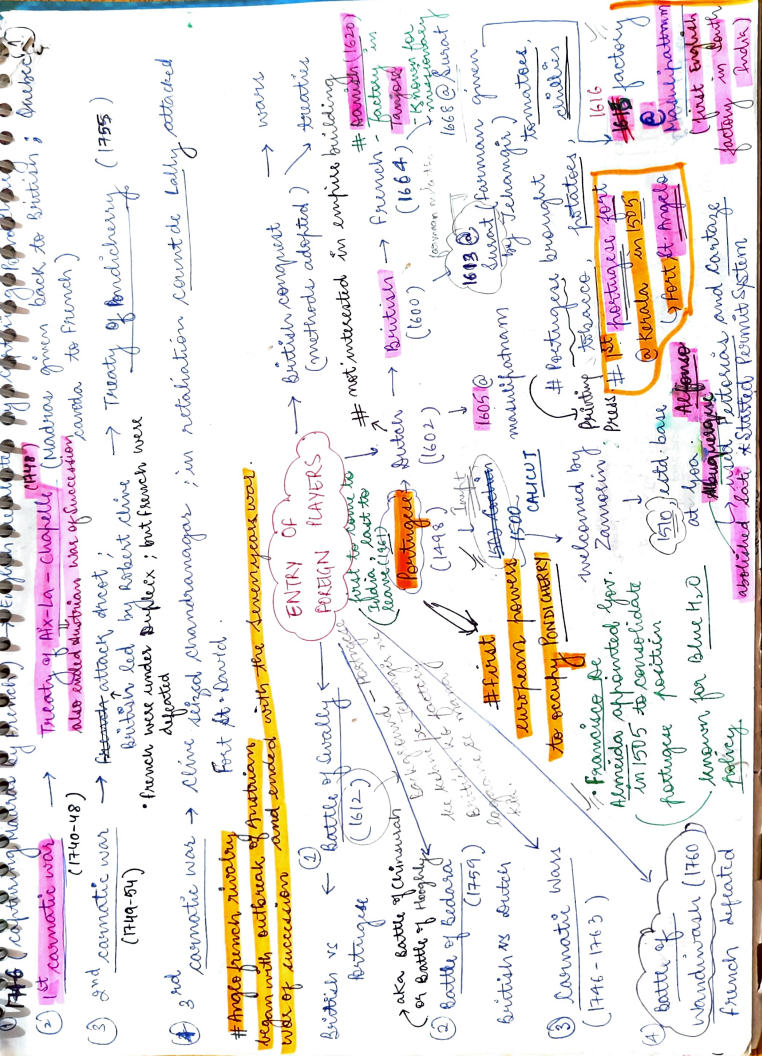 1746 (capturing Madras by French) → English retaliate by capturing
② 1st carnatic war → Treaty of Aix-La-Chapelle (1748) (Madras given back to British; Quebec,
(1740-48) also ended Austrian war of Succession canada to French)
③ 2nd carnatic war → attack Arcot; → Treaty of Pondicherry (1755)
(1749-54) British led by Robert Clive
• French were under Dupleix; but French were
defeated
④ 3rd carnatic war → Clive seized chandranagar; in retaliation count de Lally attacked
Fort St. David.
# Anglo french rivalry
began with outbreak of Austrian
war of succession and ended with the seven years war.
ENTRY OF
FOREIGN PLAYERS
→ British conquest → wars
(methods adopted) → treaties
# not interested in empire building
first to come to
India, last to
leave (1961)
Portugese → Dutch → British → French
(1498) (1602) (1600) (1664)
# Danish (1620)
- factory in
Tanjore
- known for
missionary
1668 @ Surat
1605 @
masulipatnam
1613 @
Surat (farman given
by Jehangir)
1500
CALICUT
# First
european powers
to occupy PONDICHERRY
welcomed by
Zamorin
# Portugese brought
Printing Press, tobacco, potatoes, tomatoes,
chillies
# 1st portugese fort
@ Kerala in 1505
↳ Fort St. Angelo
1616
factory
@
Masulipattnam
(first English
factory in South
India)
1510 estb. base
at Goa
Alfonso
Albuquerque
used Pertorias and Cartaze
abolished Sati & Started Permit System
• Francisco De
Almeida appointed Gov.
in 1505 to consolidate
portugese position
(known for Blue H₂O
Policy.
① Battle of Swally
(1612)
British vs
Portugese
→ aka Battle of Chinsurah
or Battle of Hooghly
② Battle of Bedara
(1759)
British vs Dutch
③ Carnatic Wars
(1746-1763)
④ Battle of
Wandiwash (1760)
French defeated